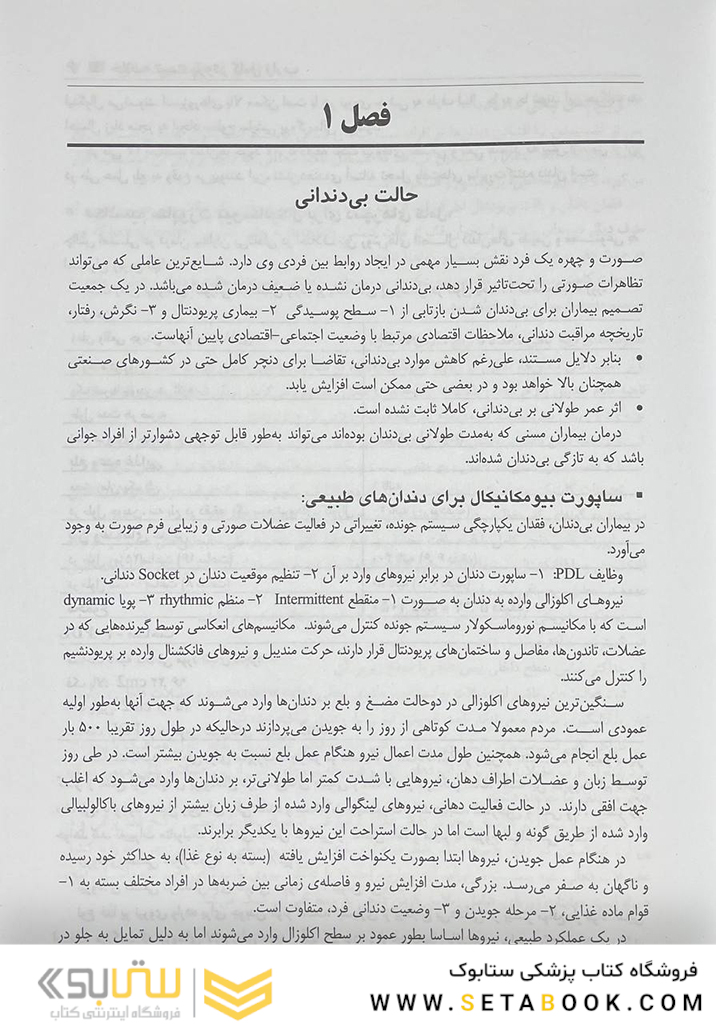 فصل ۱
حالت بی‌دندانی
صورت و چهره یک فرد نقش بسیار مهمی در ایجاد روابط بین فردی وی دارد. شایع‌ترین عاملی که می‌تواند
تظاهرات صورتی را تحت‌تاثیر قرار دهد، بی‌دندانی درمان نشده یا ضعیف درمان شده می‌باشد. در یک جمعیت
تصمیم بیماران برای بی‌دندان شدن بازتابی از ۱- سطح پوسیدگی ۲- بیماری پریودنتال و ۳- نگرش، رفتار،
تاریخچه مراقبت دندانی، ملاحظات اقتصادی مرتبط با وضعیت اجتماعی-اقتصادی پایین آنهاست.
• بنابر دلایل مستند، علی‌رغم کاهش موارد بی‌دندانی، تقاضا برای دنچر کامل حتی در کشورهای صنعتی
همچنان بالا خواهد بود و در بعضی حتی ممکن است افزایش یابد.
• اثر عمر طولانی بر بی‌دندانی، کاملا ثابت نشده است.
درمان بیماران مسنی که به‌مدت طولانی بی‌دندان بوده‌اند می‌تواند به‌طور قابل توجهی دشوارتر از افراد جوانی
باشد که به تازگی بی‌دندان شده‌اند.
▪ ساپورت بیومکانیکال برای دندان‌های طبیعی:
در بیماران بی‌دندان، فقدان یکپارچگی سیستم جونده، تغییراتی در فعالیت عضلات صورتی و زیبایی فرم صورت به وجود
می‌آورد.
وظایف PDL: ۱- ساپورت دندان در برابر نیروهای وارد بر آن ۲- تنظیم موقعیت دندان در Socket دندانی.
نیروهای اکلوزالی وارده به دندان به صورت ۱- منقطع Intermittent ۲- منظم rhythmic ۳- پویا dynamic
است که با مکانیسم نوروماسکولار سیستم جونده کنترل می‌شوند. مکانیسم‌های انعکاسی توسط گیرنده‌هایی که در
عضلات، تاندون‌ها، مفاصل و ساختمان‌های پریودنتال قرار دارند، حرکت مندیبل و نیروهای فانکشنال وارده بر پریودنشیم
را کنترل می‌کنند.
سنگین‌ترین نیروهای اکلوزالی در دوحالت مضغ و بلع بر دندان‌ها وارد می‌شوند که جهت آنها به‌طور اولیه
عمودی است. مردم معمولا مدت کوتاهی از روز را به جویدن می‌پردازند درحالیکه در طول روز تقریبا ۵۰۰ بار
عمل بلع انجام می‌شود. همچنین طول مدت اعمال نیرو هنگام عمل بلع نسبت به جویدن بیشتر است. در طی روز
توسط زبان و عضلات اطراف دهان، نیروهایی با شدت کمتر اما طولانی‌تر، بر دندان‌ها وارد می‌شود که اغلب
جهت افقی دارند. در حالت فعالیت دهانی، نیروهای لینگوالی وارد شده از طرف زبان بیشتر از نیروهای باکالولبیالی
وارد شده از طریق گونه و لبها است اما در حالت استراحت این نیروها با یکدیگر برابرند.
در هنگام عمل جویدن، نیروها ابتدا بصورت یکنواخت افزایش یافته (بسته به نوع غذا)، به حداکثر خود رسیده
و ناگهان به صفر می‌رسد. بزرگی، مدت افزایش نیرو و فاصله‌ی زمانی بین ضربه‌ها در افراد مختلف بسته به ۱-
قوام ماده غذایی، ۲- مرحله جویدن و ۳- وضعیت دندانی فرد، متفاوت است.
در یک عملکرد طبیعی، نیروها اساسا بطور عمود بر سطح اکلوزال وارد می‌شوند اما به دلیل تمایل به جلو در
فروشگاه کتاب پزشکی ستابوک
WWW.SETABOOK.COM
ستابوک
فروشگاه اینترنتی کتاب